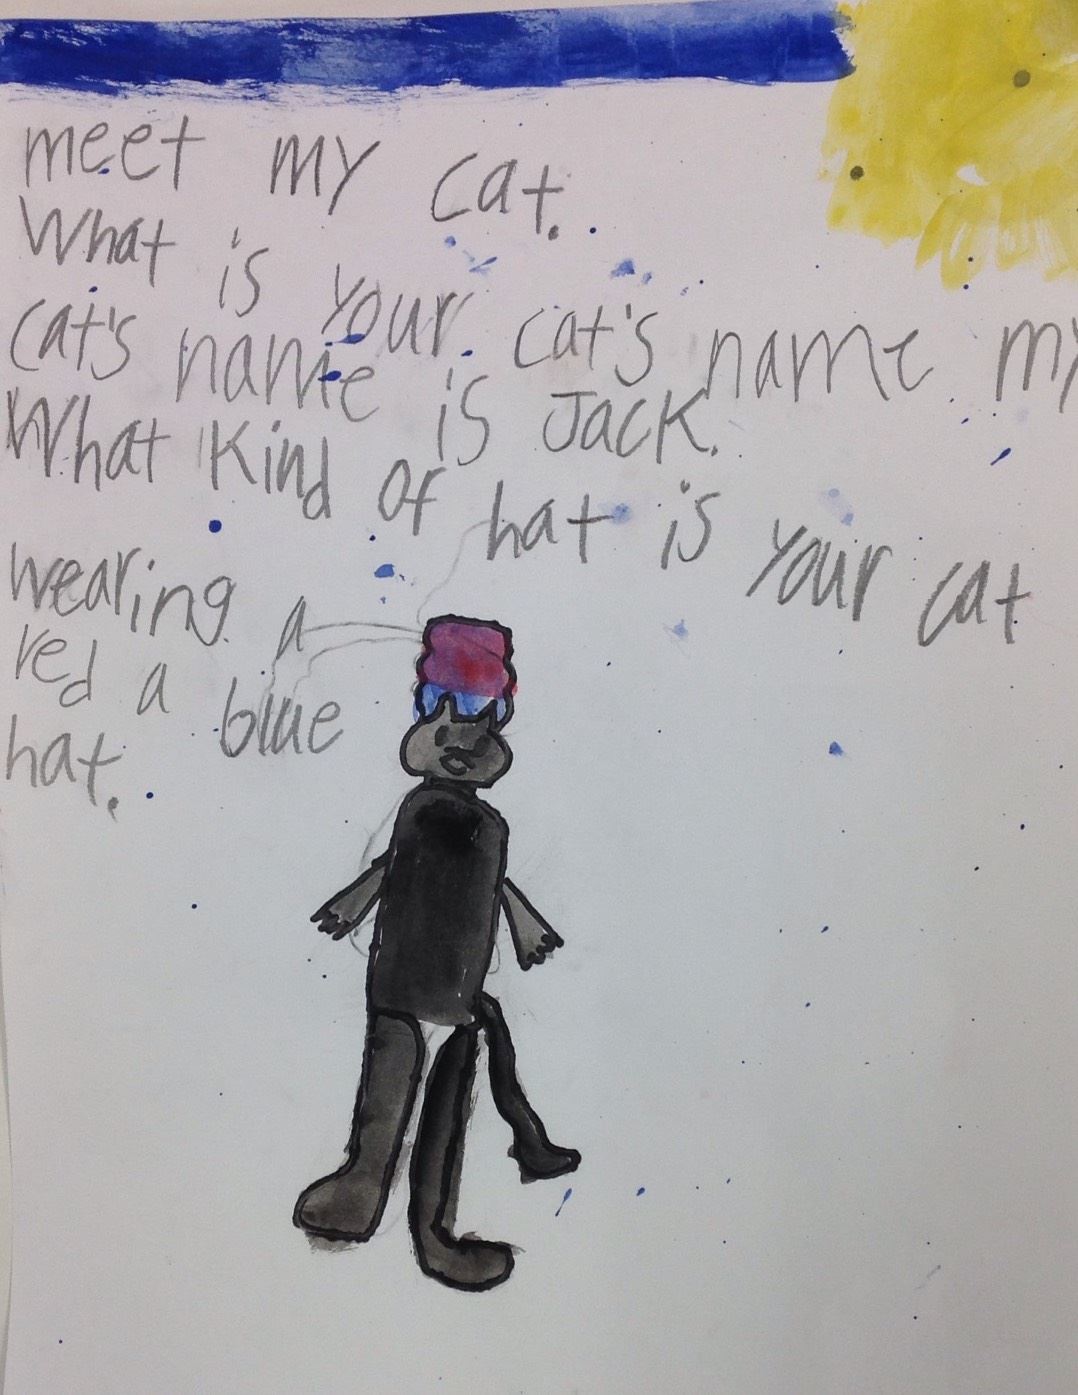 meet my cat.
What is your cat's name my
cat's name is Jack.
What kind of hat is your cat
wearing. a
red a blue
hat.